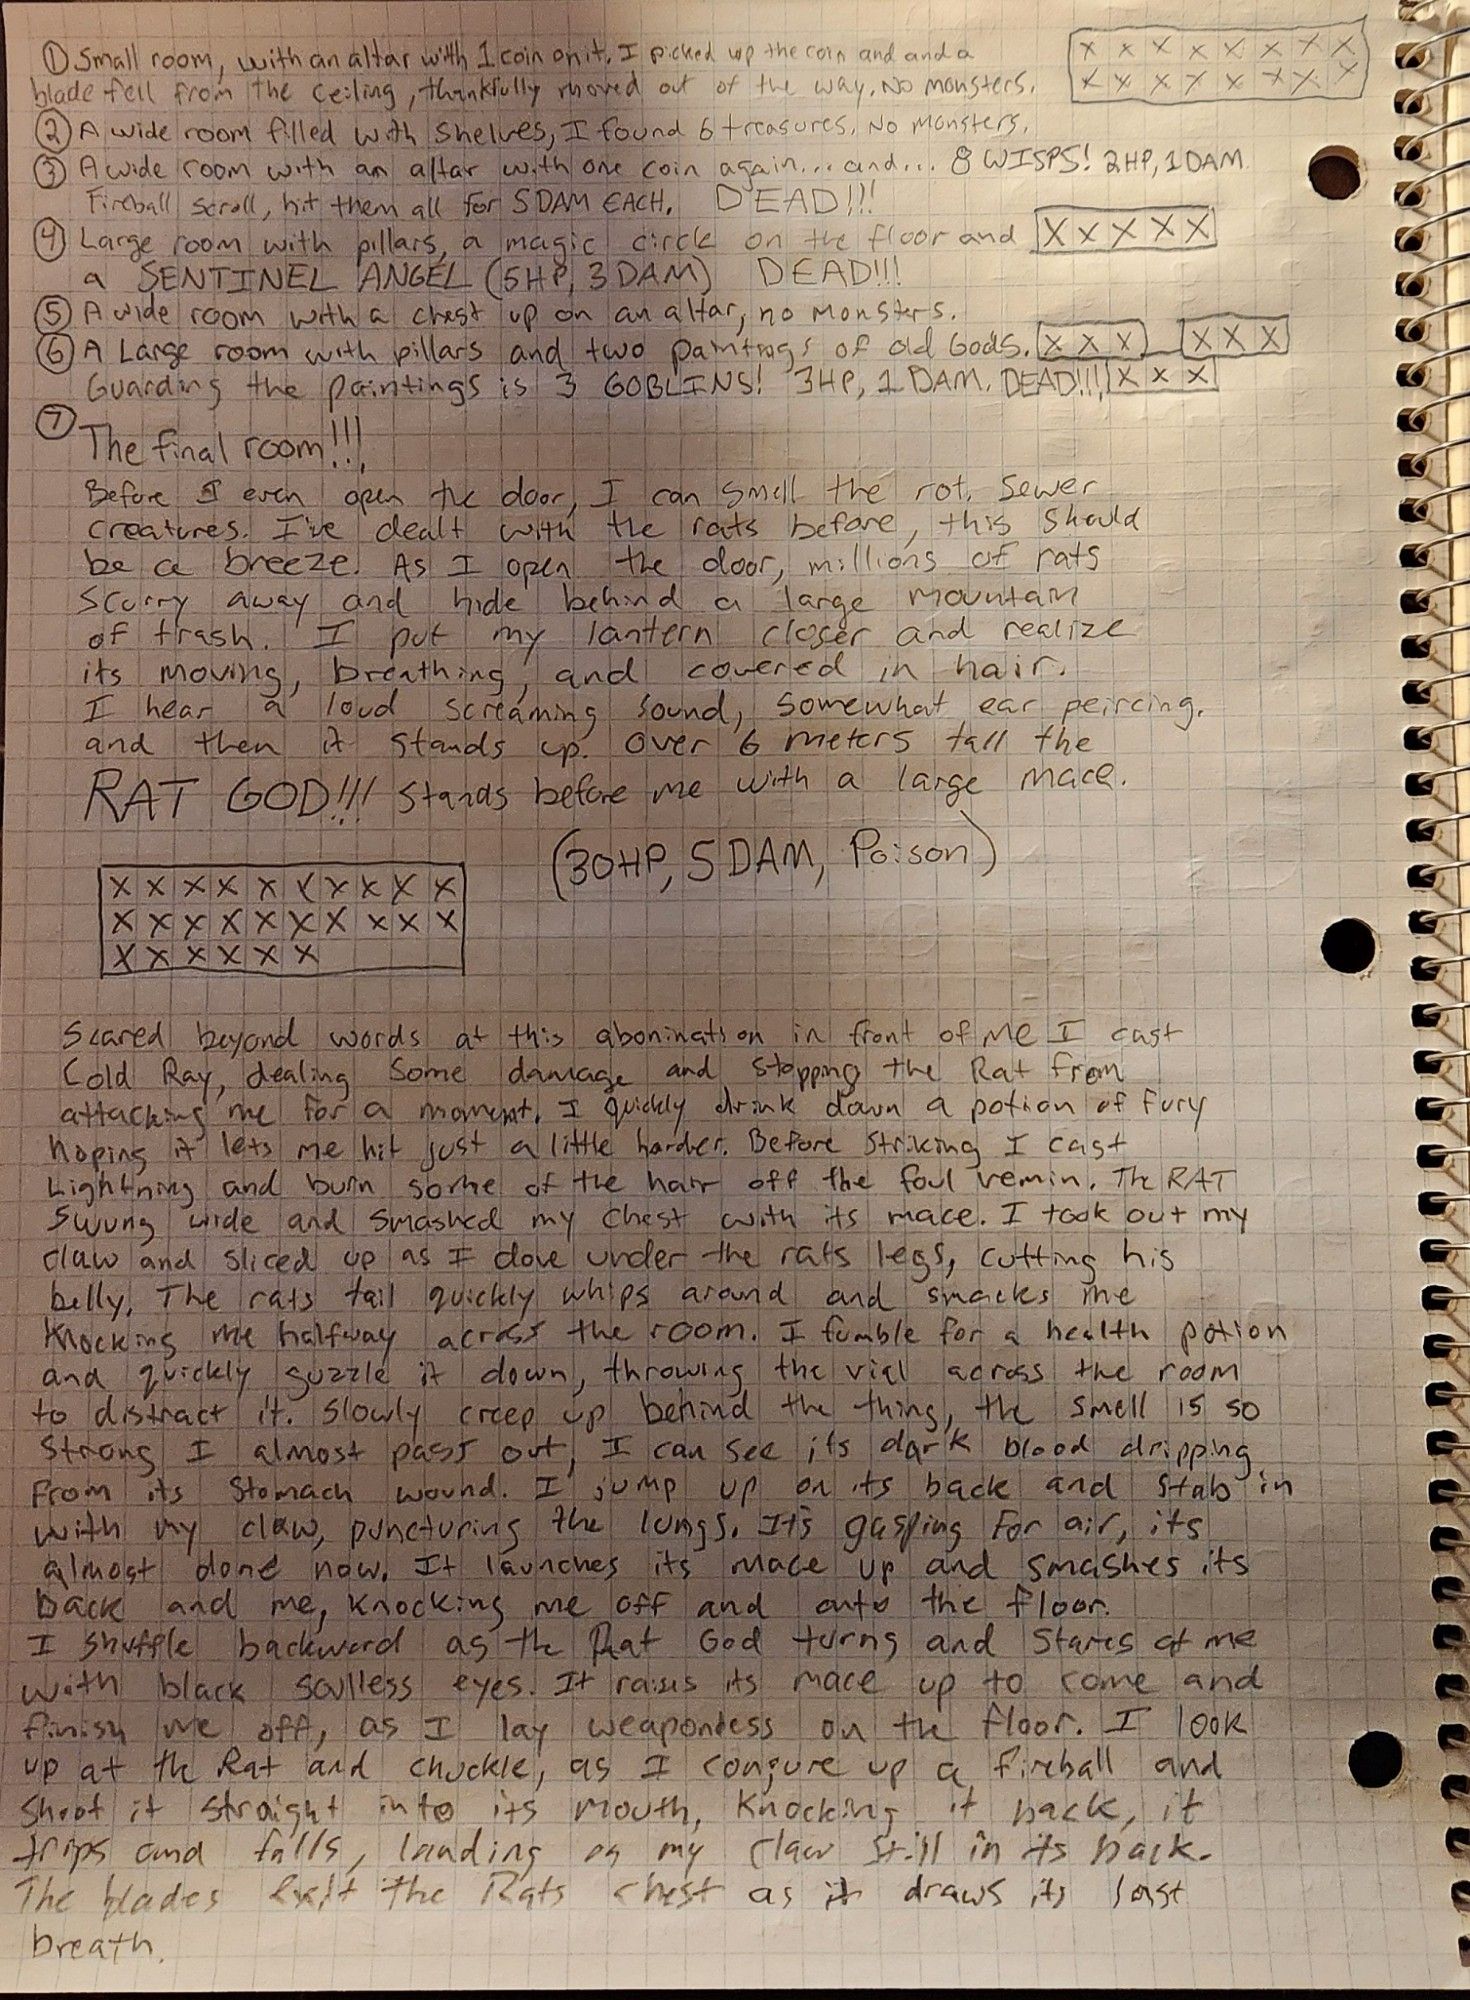 ① Small room, with an altar with 1 coin on it. I picked up the coin and and a
blade fell from the ceiling, thankfully moved out of the way. No monsters.
X X X X X X X X
X X X X X X X X
② A wide room filled with shelves, I found 6 treasures. No Monsters.
③ A wide room with an altar with one coin again... and... 8 WISPS! 2HP, 1 DAM.
Fireball scroll, hit them all for 5 DAM EACH. DEAD!!!
④ Large room with pillars, a magic circle on the floor and X X X X X
a SENTINEL ANGEL (5HP, 3 DAM) DEAD!!!
⑤ A wide room with a chest up on an altar, no monsters.
⑥ A Large room with pillars and two paintings of old Gods. X X X X X X
Guarding the paintings is 3 GOBLINS! 3HP, 1 DAM. DEAD!!! X X X
⑦ The final room!!!
Before I even open the door, I can smell the rot. Sewer
creatures. I've dealt with the rats before, this should
be a breeze. As I open the door, millions of rats
scurry away and hide behind a large mountain
of trash. I put my lantern closer and realize
its moving, breathing, and covered in hair.
I hear a loud screaming sound, somewhat ear peircing.
and then it stands up. Over 6 meters tall the
RAT GOD!!! stands before me with a large mace.
(30HP, 5 DAM, Poison)
X X X X X X X X X X
X X X X X X X X X X
X X X X X X
Scared beyond words at this abonination in front of me I cast
Cold Ray, dealing some damage and stopping the Rat from
attacking me for a moment. I quickly drink down a potion of fury
hoping it lets me hit just a little harder. Before Striking I cast
Lightning and burn some of the hair off the foul vemin. The RAT
swung wide and smashed my chest with its mace. I took out my
claw and sliced up as I dove under the rats legs, cutting his
belly. The rats tail quickly whips around and smacks me
Knocking me halfway across the room. I fumble for a health potion
and quickly guzzle it down, throwing the vial across the room
to distract it. Slowly creep up behind the thing, the smell is so
strong I almost pass out, I can see its dark blood dripping
from its stomach wound. I jump up on its back and stab in
with my claw, puncturing the lungs. Its gasping for air, its
almost done now. It launches its mace up and smashes its
back and me, knocking me off and onto the floor.
I shuffle backward as the Rat God turns and stares at me
with black soulless eyes. It raises its mace up to come and
finish me off, as I lay weaponless on the floor. I look
up at the Rat and chuckle, as I conjure up a fireball and
shoot it straight into its mouth, knocking it back, it
trips and falls, landing on my claw still in its back.
The blades exit the Rats chest as it draws its last
breath.